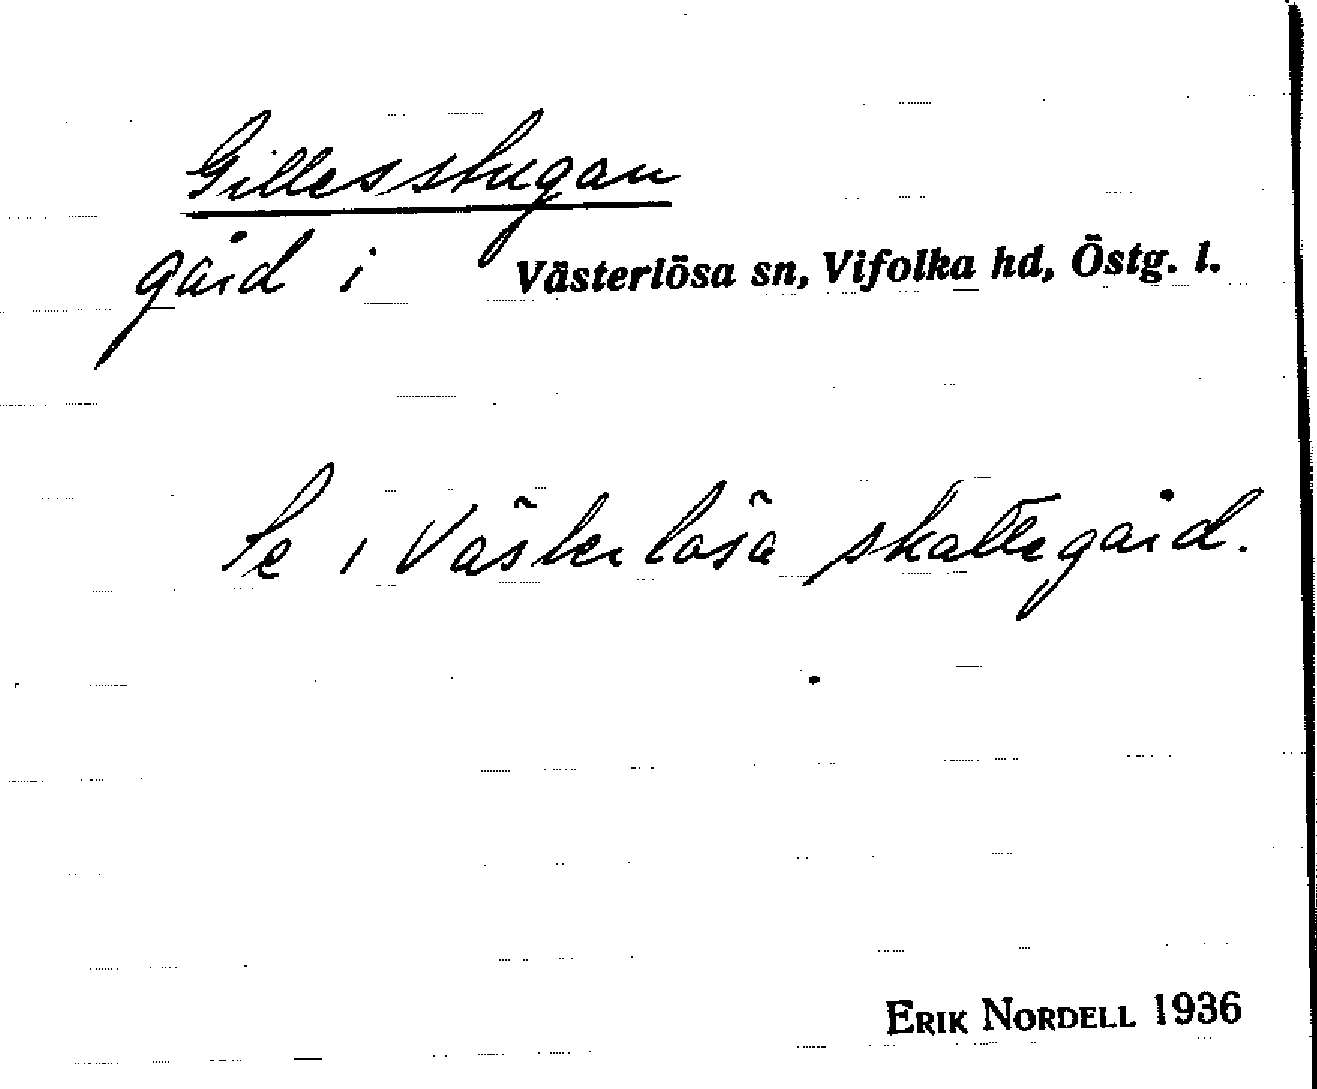 Gillesstugan
gård i Västerlösa sn, Vifolka hd, Östg. l.
Se i Västerlösa skattegård.
ERIK NORDELL 1936